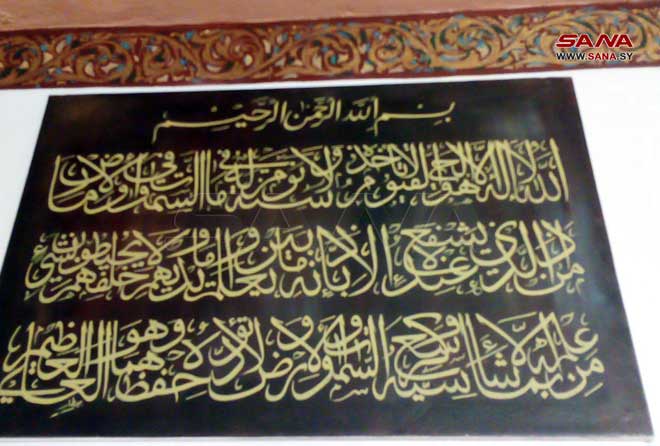 SANA
WWW.SANA.SY
بسم الله الرحمن الرحيم
الله لا إله إلا هو الحي القيوم لا تأخذه سنة ولا نوم له ما في السموات وما في الأرض
من ذا الذي يشفع عنده إلا بإذنه يعلم ما بين أيديهم وما خلفهم ولا يحيطون بشيء
من علمه إلا بما شاء وسع كرسيه السموات والأرض ولا يؤده حفظهما وهو العلي العظيم